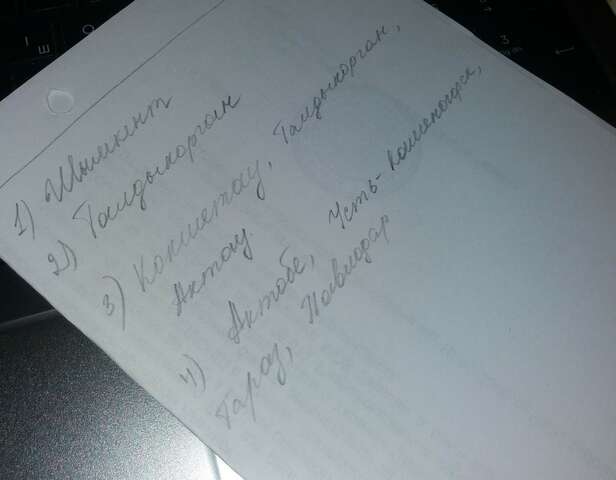 1) Шымкент
2) Талдыкорган
3) Кокшетау, Талдыкорган,
Актау.
4) Актобе, Усть-Каменогорск,
Тараз, Павлодар